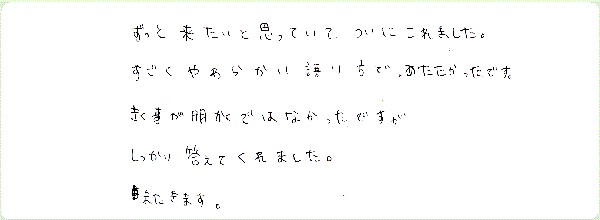 ずっと来たいと思っていて、ついにこれました。
すごくやわらかい語り方で、あたたかったです。
聞く事が明かくではなかったですが
しっかり答えてくれました。
またきます。